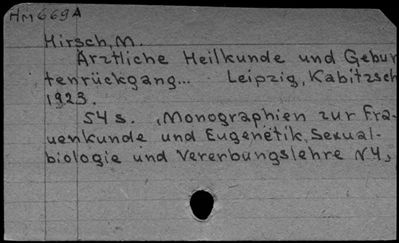 HM669A
Hirsch, M.
Ärztliche Heilkunde und Gebur
tenrückgang... Leipzig, Kabitzsch
1923.
54 s. (Monographien zur Fra-
uenkunde und Eugenetik, Sexual-
biologie und Vererbungslehre N4)